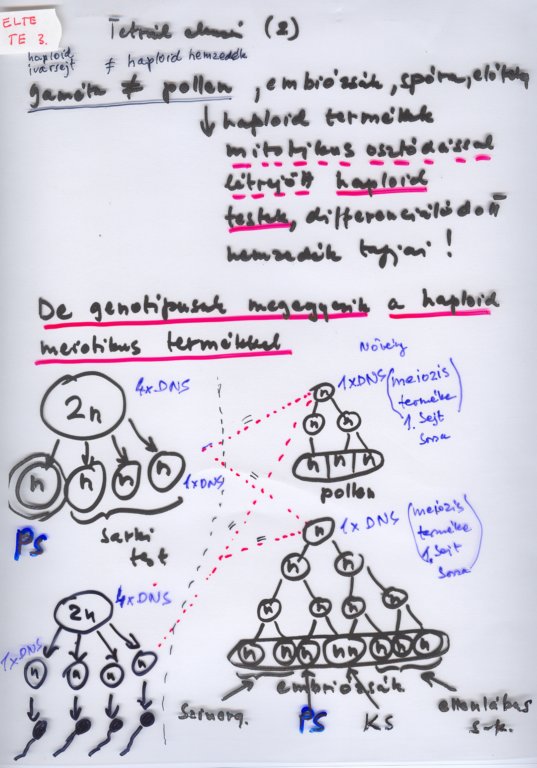 ELTE
TE 3.
Tetrád elemei (2)
haploid
ivarsejt ≠ haploid nemzedék
gaméta ≠ pollen, embriózsák, spóra, előtelep
↓ haploid termékek
mitotikus osztódással
létrejött haploid
testek, differenciálódott
nemzedék tagjai!
De genotípusuk megegyezik a haploid
meiotikus termékkel
Növény
4xDNS
2n
n n n n
1xDNS
PS
Sarki
test
1xDNS
(meiozis
terméke
1. Sejt
sorsa)
n
n n
n n n
pollen
1xDNS
(meiozis
terméke
1. Sejt
sorsa)
n
n n
n n n n
n n n n n n n n
embriózsák
Szinerg.
PS
KS
ellenlábas
s-k.
4xDNS
2n
1xDNS
n n n n